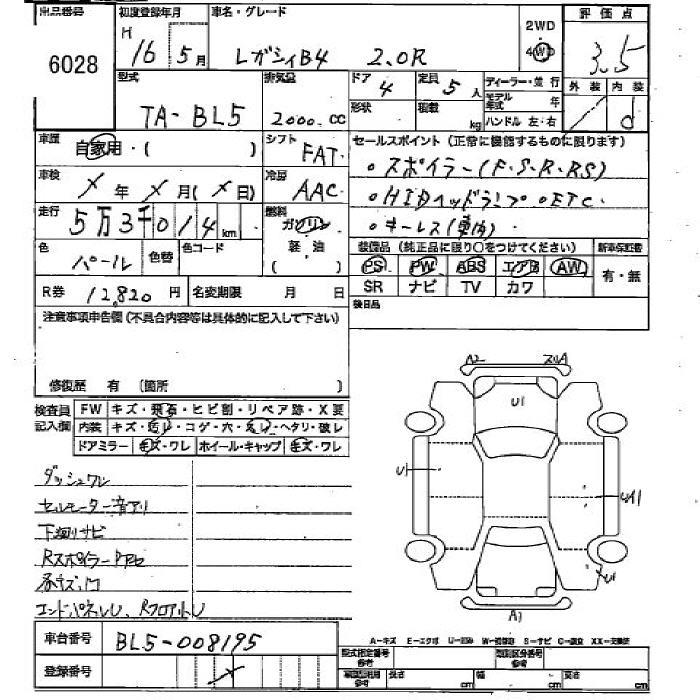 出品番号 初度登録年月 車名・グレード 2WD 評価点
6028 H 16年 5月 レガシィB4 2.0R 4WD 3.5
型式 排気量 ドア 4 定員 5人 ディーラー・並行 外装 内装
TA-BL5 2000.CC 形状 積載 kg モデル年式 年 ハンドル 左・右 d
車歴 自家用・( ) シフト FAT セールスポイント(正常に機能するものに限ります)
車検 X年 X月(X日) 冷房 AAC 。スポイラー(F・S・R・RS)
走行 5万3千014km 燃料 ガソリン 。HIDヘッドランプ 。ETC
軽油 ( ) 。キーレス(車内)
色 パール 色替 色コード 装備品(純正品に限り○をつけてください) 新車保証書
PS PW ABS エアB AW 有・無
R券 12,820円 名変期限 月 日 SR ナビ TV カワ
注意事項申告欄(不具合内容等は具体的に記入して下さい) 後日品
修復歴 有 (箇所
検査員 FW キズ・飛石・ヒビ割・リペア跡・X要
記入欄 内装 キズ・汚レ・コゲ・穴・スレ・ヘタリ・破レ
ドアミラー キズ・ワレ ホイール・キャップ キズ・ワレ
A2 スリA
U1
U1
U1
A1
ダッシュワレ
セルモーター音アリ
下廻りサビ
エンドパネルU、Rフロアー
車台番号 BL5-008195
A-キズ E-エクボ S-サビ
登録番号 型式指定番号 参考 類別区分番号 参考
長さ cm 幅 cm 高さ cm